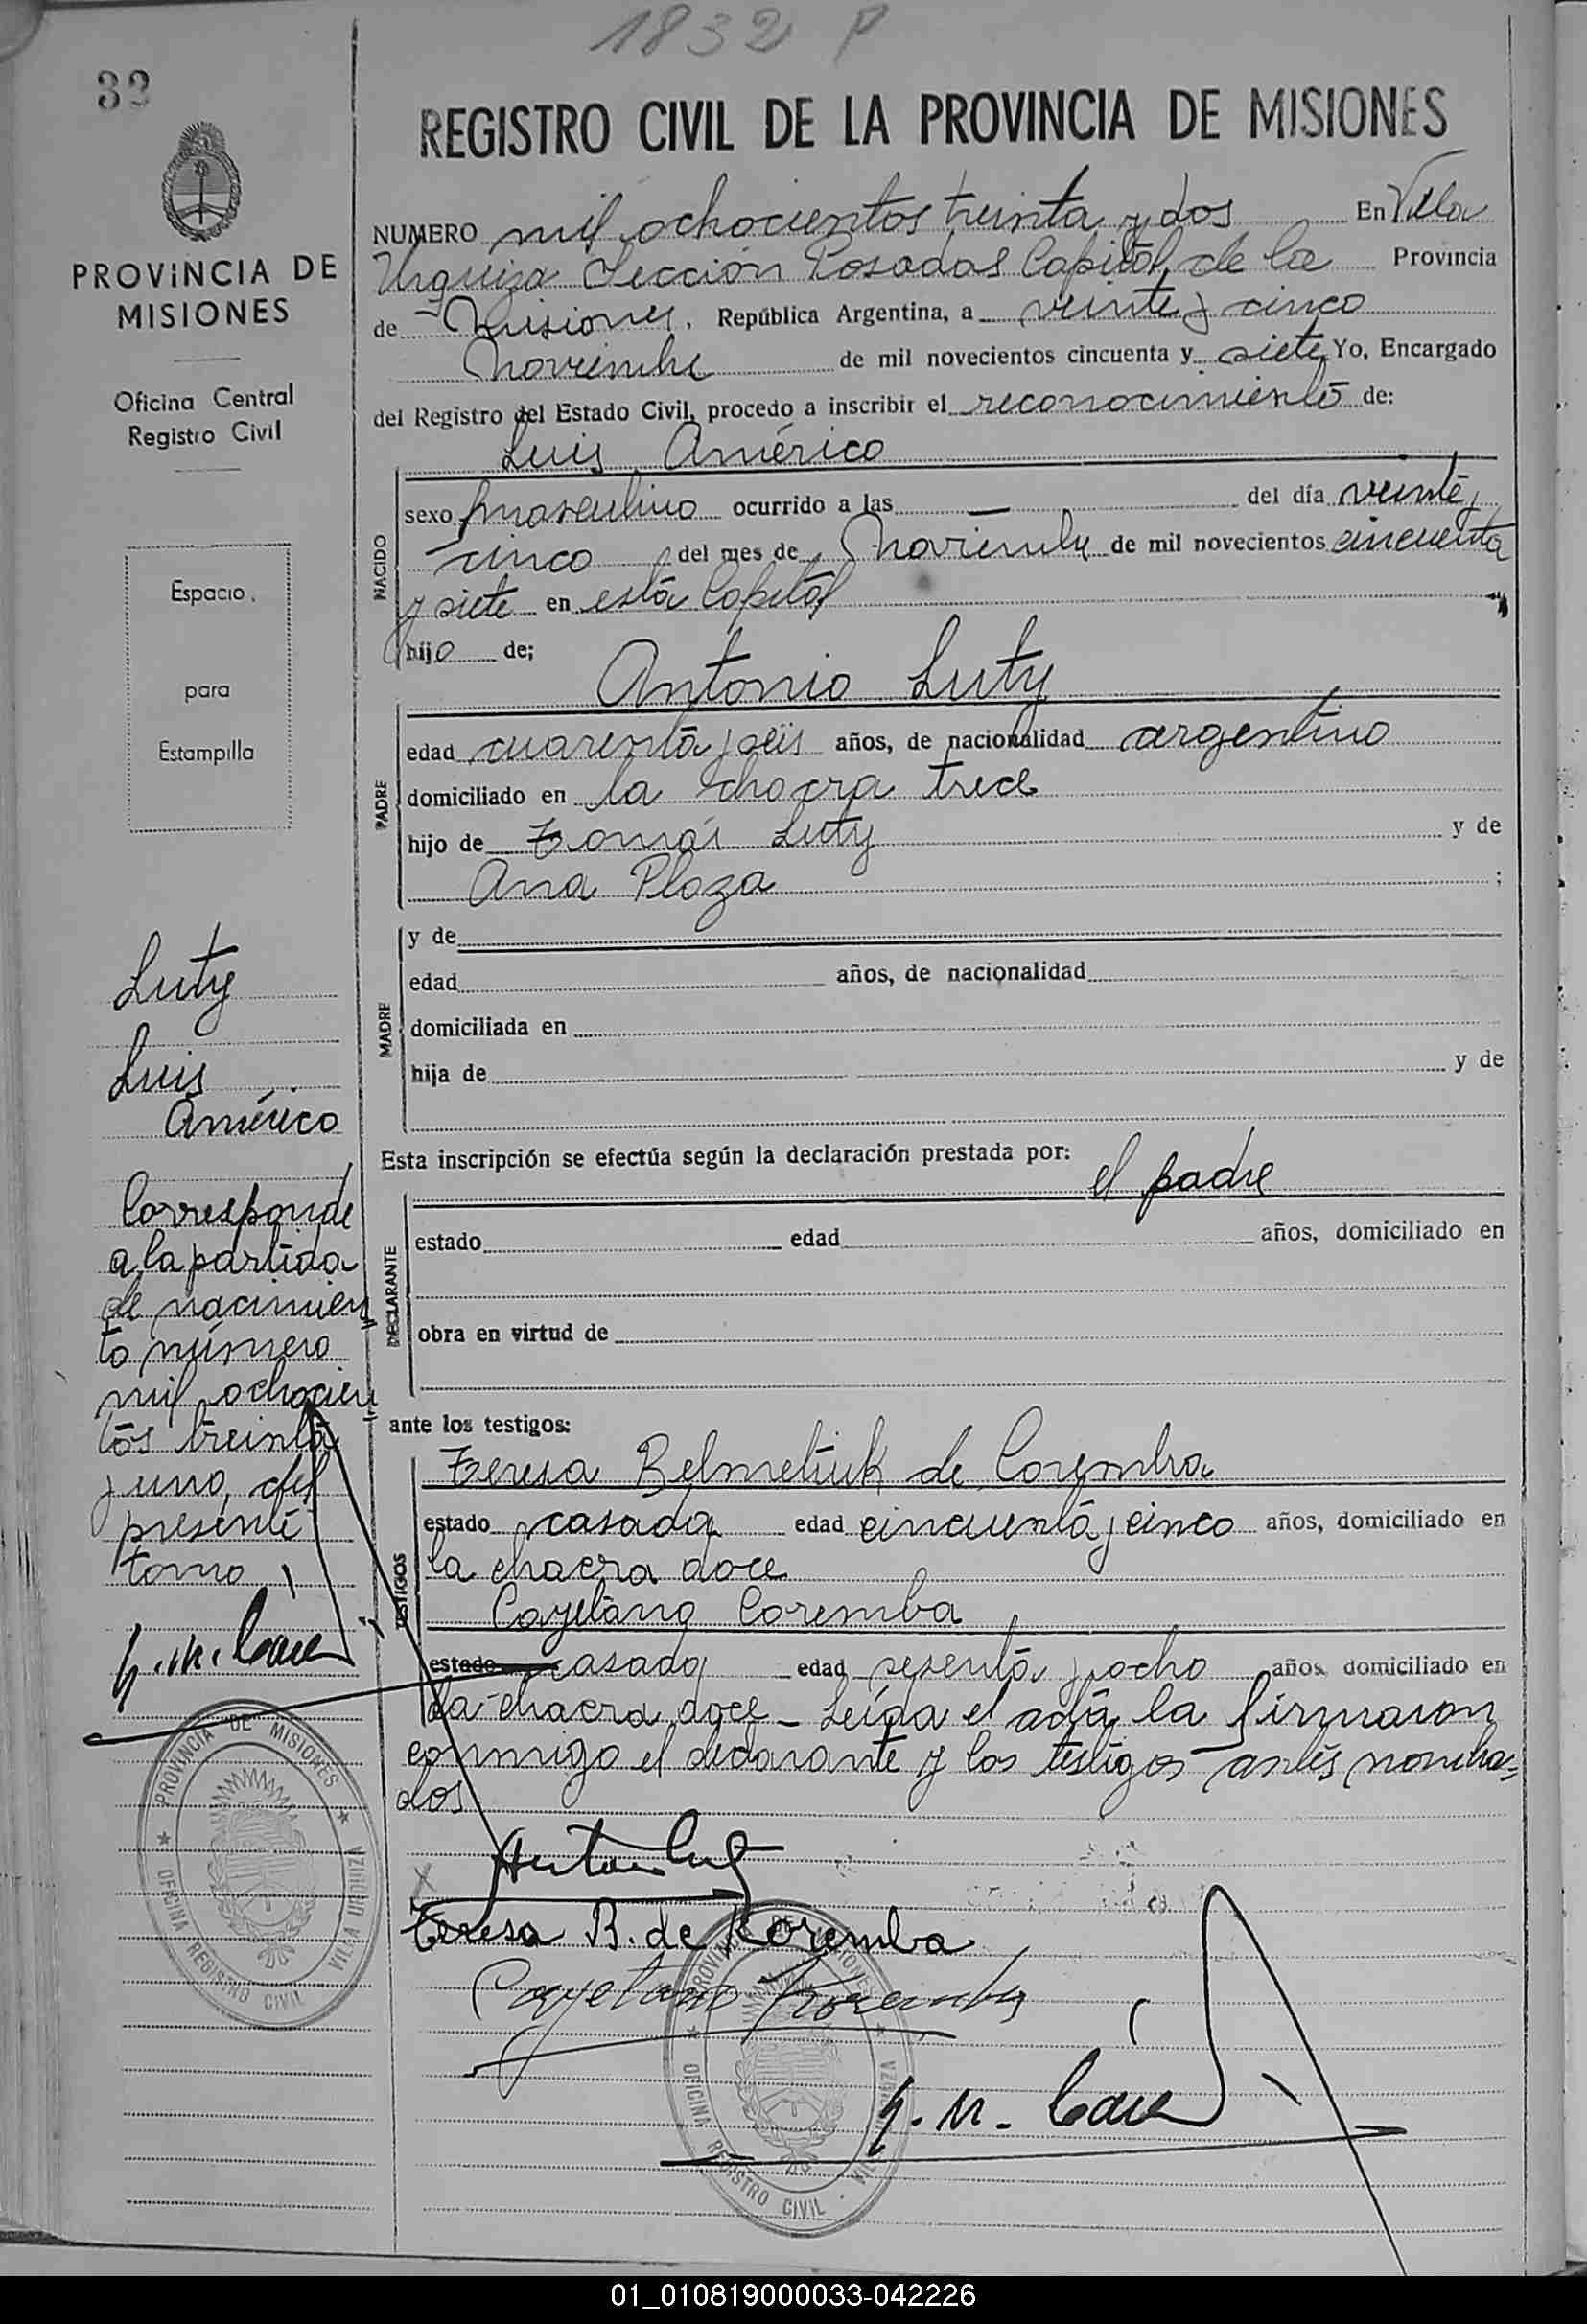 1832 P
32
REGISTRO CIVIL DE LA PROVINCIA DE MISIONES
PROVINCIA DE
MISIONES
Oficina Central
Registro Civil
Espacio
para
Estampilla
NUMERO mil ochocientos treinta y dos En Villa
Urquiza Sección Posadas Capital de la Provincia
de Misiones, República Argentina, a veinte y cinco
Noviembre de mil novecientos cincuenta y siete Yo, Encargado
del Registro del Estado Civil, procedo a inscribir el reconocimiento de:
Luis Américo
NACIDO
sexo masculino ocurrido a las — del día veinte y
cinco del mes de Noviembre de mil novecientos cincuenta
y siete en esta Capital
hijo de;
Antonio Luty
PADRE
edad cuarenta y seis años, de nacionalidad argentino
domiciliado en la chacra trece
hijo de Tomás Luty y de
Ana Plaza ;
MADRE
y de
edad años, de nacionalidad
domiciliada en
hija de y de
Esta inscripción se efectúa según la declaración prestada por:
el padre
DECLARANTE
estado edad años, domiciliado en
obra en virtud de
ante los testigos:
TESTIGOS
Teresa Belmetiuk de Coremba
estado casada edad cincuenta y cinco años, domiciliado en
la chacra doce
Cayetano Coremba
estado casado edad sesenta y ocho años domiciliado en
la chacra doce - Leída el acta la firmaron
conmigo el declarante y los testigos antes nombra=
dos
Teresa B. de Koremba
Cayetano Koremba
Luty
Luis
Américo
Corresponde
a la partida
de nacimien
to número
mil ochocien
tos treinta
y uno, del
presente
tomo
PROVINCIA DE MISIONES
OFICINA REGISTRO CIVIL VILLA URQUIZA
PROVINCIA DE MISIONES
OFICINA REGISTRO CIVIL
01_010819000033-042226